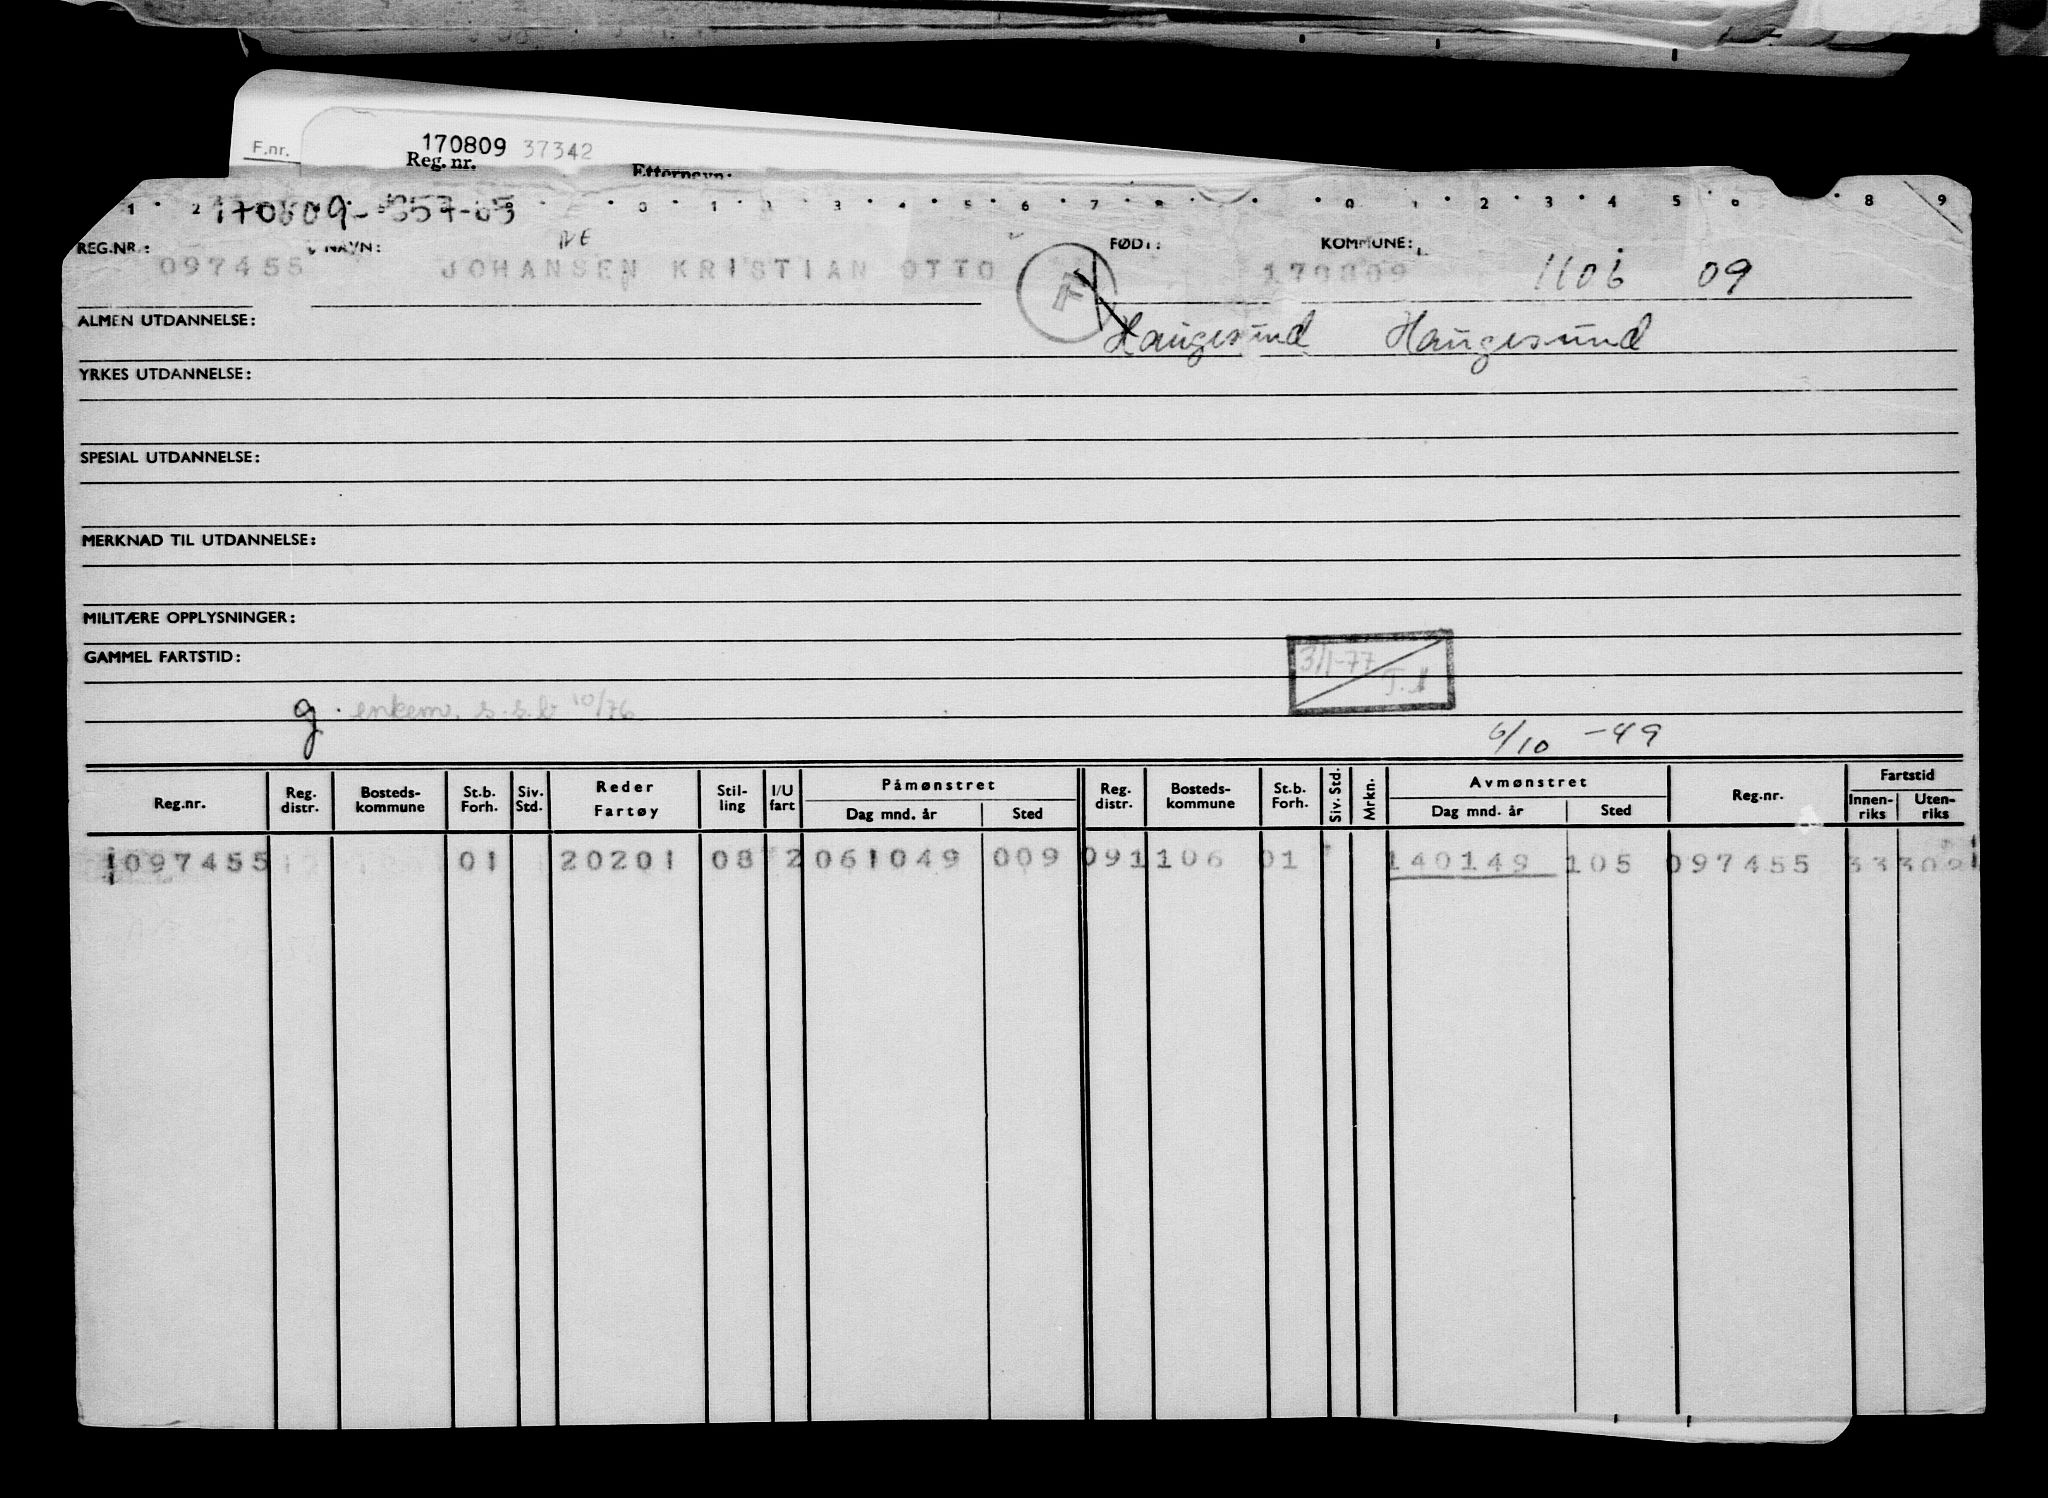 F.nr. 170809 37342
Reg. nr. Etternavn:
REG.NR.: NAVN: FØDT: KOMMUNE:
097455 JOHANSEN KRISTIAN OTTO 170809 1106 09
ALMEN UTDANNELSE: Haugesund Haugesund
YRKES UTDANNELSE:
SPESIAL UTDANNELSE:
MERKNAD TIL UTDANNELSE:
MILITÆRE OPPLYSNINGER:
GAMMEL FARTSTID:
3/1-77
g. enkem. s.s.b 10/76
6/10 -49
Reg.nr. Reg. distr. Bosteds-kommune St.b. Forh. Siv. Std. Reder Fartøy Stil-ling I/U fart Påmønstret Dag mnd. år Sted Reg. distr. Bosteds-kommune St.b. Forh. Siv. Std. Mrkn. Avmønstret Dag mnd. år Sted Reg.nr. Fartstid Innen-riks Uten-riks
097455 01 20201 08 2 061049 009 09 1106 01 140149 105 097455